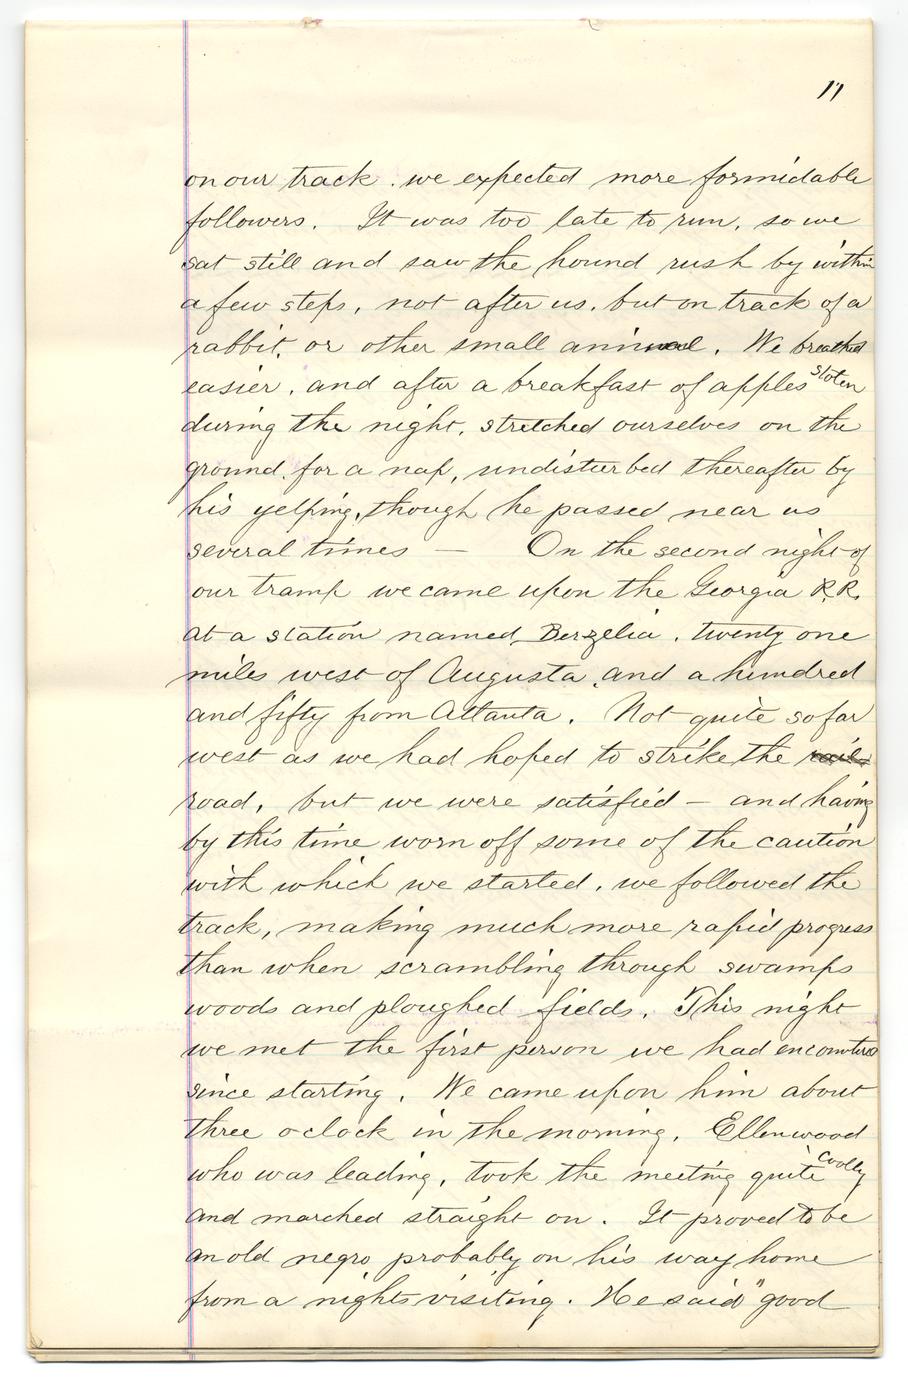 17
on our track. we expected more formidable
followers. It was too late to run, so we
sat still and saw the hound rush by within
a few steps, not after us, but on track of a
rabbit, or other small animal. We breathed
easier, and after a breakfast of apples stolen
during the night, stretched ourselves on the
ground for a nap, undisturbed thereafter by
his yelping, though he passed near us
several times — On the second night of
our tramp we came upon the Georgia R.R.
at a station named Berzelia, twenty one
miles west of Augusta, and a hundred
and fifty from Atlanta. Not quite so far
west as we had hoped to strike the rail
road, but we were satisfied – and having
by this time worn off some of the caution
with which we started, we followed the
track, making much more rapid progress
than when scrambling through swamps
woods and ploughed fields. This night
we met the first person we had encountered
since starting. We came upon him about
three oclock in the morning. Ellenwood
who was leading, took the meeting quite coolly
and marched straight on. It proved to be
an old negro probably on his way home
from a nights visiting. He said "good